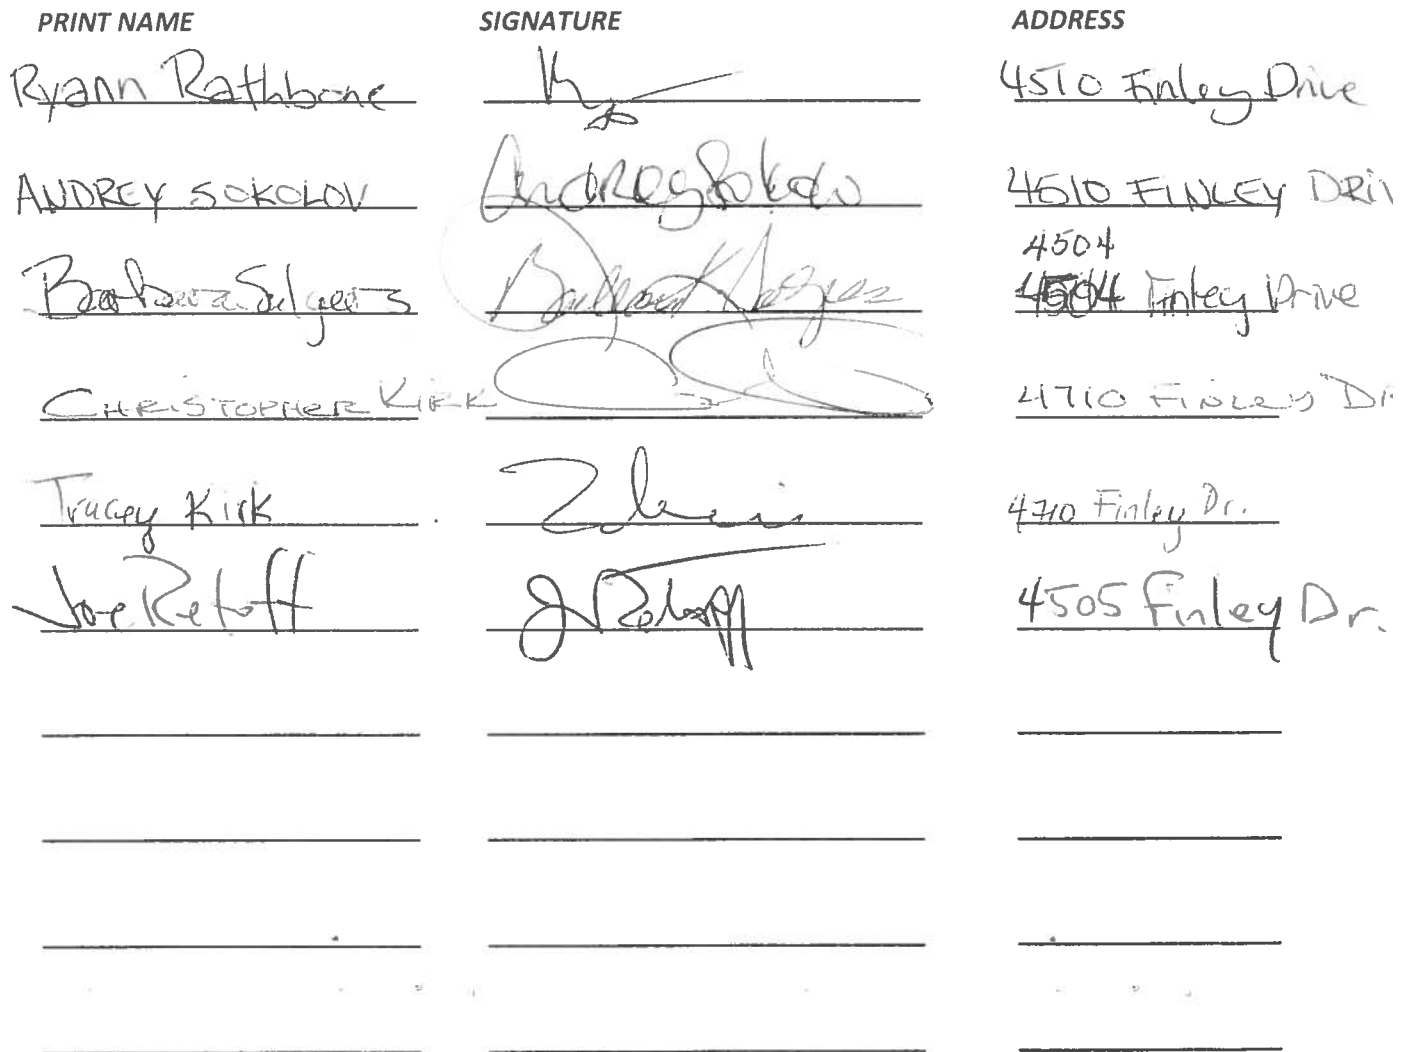 PRINT NAME SIGNATURE ADDRESS
Ryann Rathbone 4510 Finley Drive
ANDREY SOKOLOV Andrey Sokolov 4510 FINLEY DRIV
4504
Barbara 4504 Finley Drive
CHRISTOPHER KIRK 4710 FINLEY DR
Tracey Kirk 4710 Finley Dr.
Joe 4505 Finley Dr.